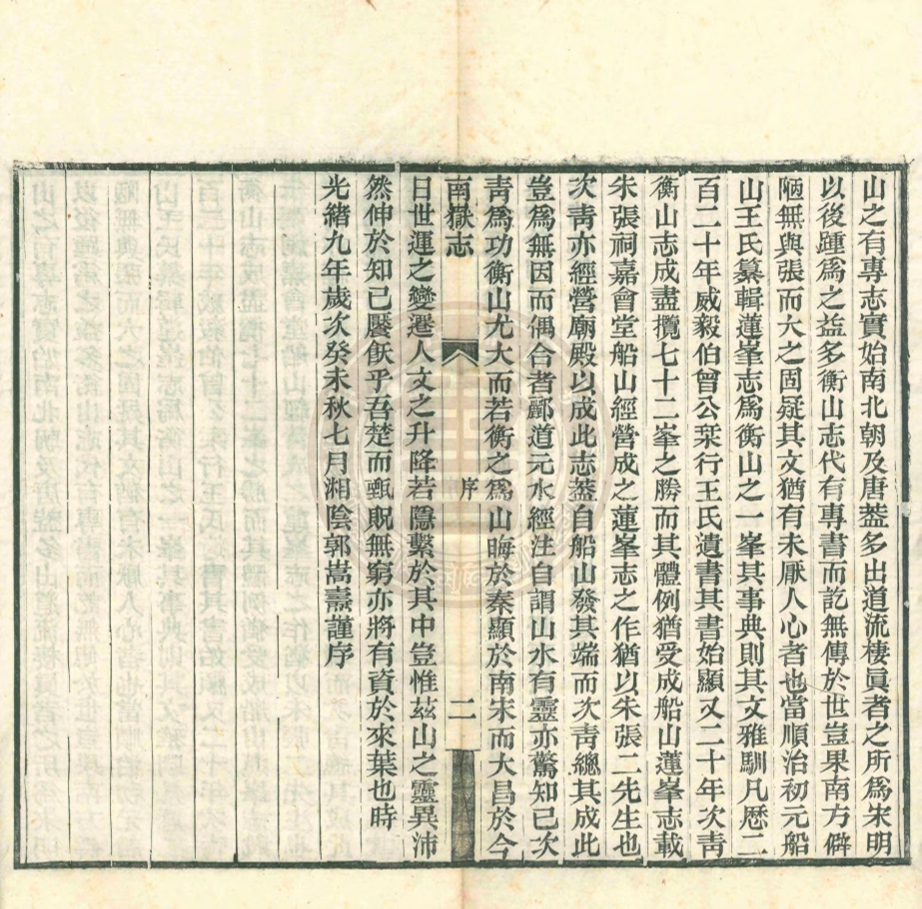 山之有專志實始南北朝及唐葢多出道流棲眞者之所爲宋明
以後踵爲之益多衡山志代有專書而訖無傳於世豈果南方僻
陋無與張而大之固疑其文猶有未厭人心者也當順治初元船
山王氏纂輯蓮峯志爲衡山之一峯其事典則其文雅馴凡歷二
百二十年威毅伯曾公栞行王氏遺書其書始顯又二十年次靑
衡山志成盡攬七十二峯之勝而其體例猶受成船山蓮峯志載
朱張祠嘉會堂船山經營成之蓮峯志之作猶以朱張二先生也
次靑亦經營廟殿以成此志葢自船山發其端而次靑總其成此
豈爲無因而偶合者酈道元水經注自謂山水有靈亦驚知已次
靑爲功衡山尤大而若衡之爲山晦於秦顯於南宋而大昌於今
南嶽志 序 二
日世運之變遷人文之升降若隱繫於其中豈惟茲山之靈異沛
然伸於知已饜飫乎吾楚而甄貺無窮亦將有資於來葉也時
光緒九年歲次癸未秋七月湘陰郭嵩燾謹序